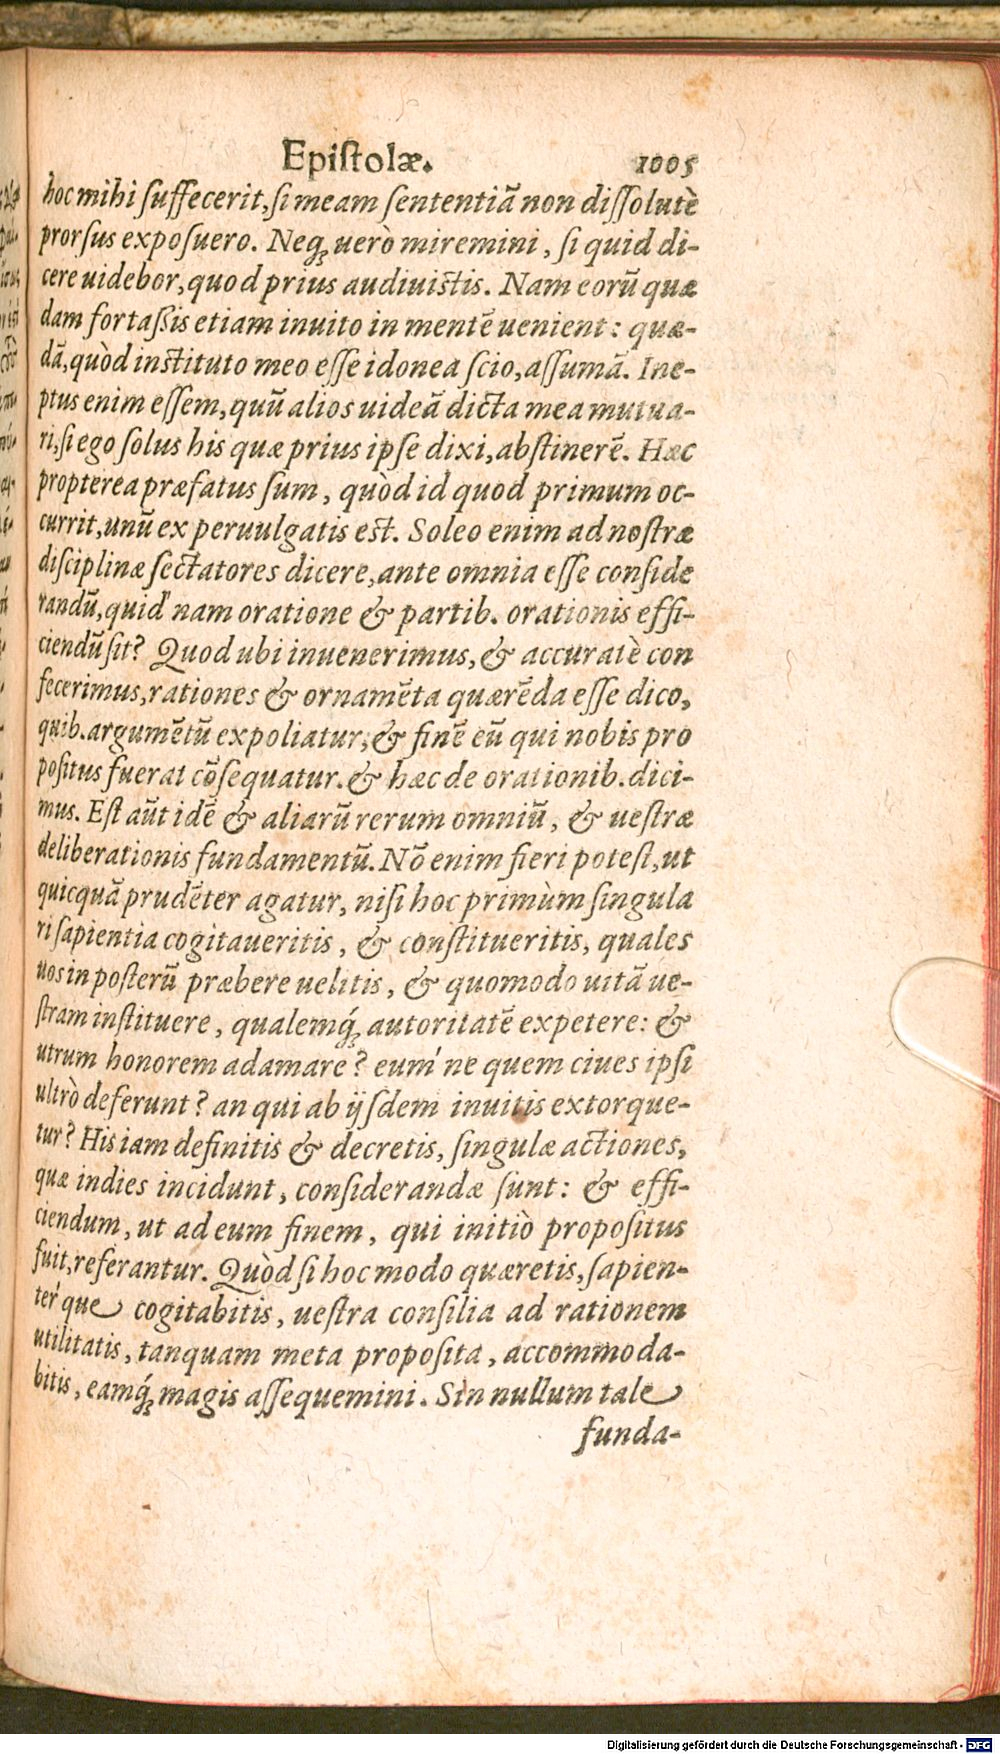 Epiſtolæ. 1005
hoc mihi ſuffecerit, ſi meam ſententiã non diſſolutè
prorſus expoſuero. Neq́ꝫ uerò miremini, ſi quid di-
cere uidebor, quod prius audiuiſtis. Nam eorũ quæ
dam fortaſsis etiam inuito in mentẽ uenient: quæ-
dã, quòd inſtituto meo eſſe idonea ſcio, aſſumã. Ine-
ptus enim eſſem, quũ alios uideã dicta mea mutua-
ri, ſi ego ſolus his quæ prius ipſe dixi, abſtinerẽ. Hæc
propterea præfatus ſum, quòd id quod primum oc-
currit, unũ ex peruulgatis eſt. Soleo enim ad noſtræ
diſciplinæ ſectatores dicere, ante omnia eſſe conſide
randũ, quid nam oratione & partib. orationis effi-
ciendũ ſit? Quod ubi inuenerimus, & accuratè con
fecerimus, rationes & ornamẽta quærẽda eſſe dico,
quib. argumẽtũ expoliatur, & finẽ eũ qui nobis pro
poſitus fuerat cõſequatur. & hæc de orationib. dici-
mus. Eſt aũt idẽ & aliarũ rerum omniũ, & ueſtræ
deliberationis fundamentũ. Nõ enim fieri poteſt, ut
quicquã prudẽter agatur, niſi hoc primùm ſingula
ri ſapientia cogitaueritis, & conſtitueritis, quales
uos in poſterũ præbere uelitis, & quomodo uitã ue-
ſtram inſtituere, qualemq́ꝫ autoritatẽ expetere: &
utrum honorem adamare? eum´ne quem ciues ipſi
ultrò deferunt? an qui ab ijſdem inuitis extorque-
tur? His iam definitis & decretis, ſingulæ actiones,
quæ indies incidunt, conſiderandæ ſunt: & effi-
ciendum, ut ad eum finem, qui initiò propoſitus
fuit, referantur. Quòd ſi hoc modo quæretis, ſapien-
ter´que cogitabitis, ueſtra conſilia ad rationem
utilitatis, tanquam meta propoſita, accommoda-
bitis, eamq́ꝫ magis aſſequemini. Sin nullum tale
funda-
Digitalisierung gefördert durch die Deutsche Forschungsgemeinschaft - DFG